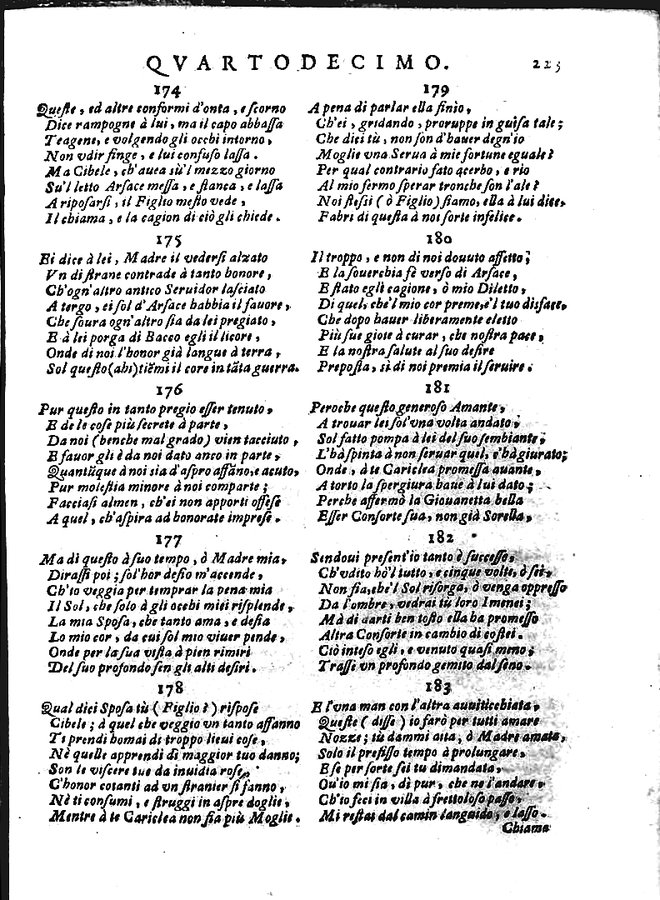 QVARTODECIMO. 225
174
Queste, ed altre conformi d'onta, e scorno
Dice rampogne à lui, ma il capo abbassa
Teagene, e volgendo gli occhi intorno,
Non vdir finge, e lui confuso lassa.
Ma Cibele, ch'auea sù'l mezzo giorno
Su'l letto Arsace messa, e stanca, e lassa
A riposarsi, il Figlio mesto vede,
Il chiama, e la cagion di ciò gli chiede.
175
Ei dice à lei, Madre il vedersi alzato
Vn di strane contrade à tanto honore,
Ch'ogn'altro antico Seruidor lasciato
A tergo, ei sol d'Arsace habbia il fauore,
Che soura ogn'altro sia da lei pregiato,
E à lei porga di Bacco egli il licore,
Onde di noi l'honor già langue à terra,
Sol questo (ahi) tiẽmi il core in tãta guerra.
176
Pur questo in tanto pregio esser tenuto,
E de le cose più secrete à parte,
Da noi (benche mal grado) vien tacciuto,
E fauor gli è da noi dato anco in parte,
Quantũque à noi sia d'aspro affãno, e acuto,
Pur molestia minore à noi comparte;
Facciasi almen, ch'ei non apporti offese
A quel, ch'aspira ad honorate imprese.
177
Ma di questo à suo tempo, ò Madre mia,
Dirassi poi; sol'hor desio m'accende,
Ch'io veggia per temprar la pena mia
Il Sol, che solo à gli occhi miei risplende,
La mia Sposa, che tanto ama, e desia
Lo mio cor, da cui sol mio viuer pende,
Onde per la sua vista à pien rimiri
Del suo profondo sen gli alti desiri.
178
Qual dici Sposa tù (Figlio?) rispose
Cibele; à quel che veggio vn tanto affanno
Ti prendi homai di troppo lieui cose,
Nè quelle apprendi di maggior tuo danno;
Son le viscere tue da inuidia rose,
C'honor cotanti ad vn stranier si fanno,
Nè ti consumi, e struggi in aspre doglie,
Mentre à te Cariclea non fia più Moglie.
179
A pena di parlar ella finio,
Ch'ei, gridando, proruppe in guisa tale;
Che dici tù, non son d'hauer degn'io
Moglie vna Serua à mie fortune eguale?
Per qual contrario fato acerbo, e rio
Al mio fermo sperar tronche son l'ale?
Noi stessi (ò Figlio) siamo, ella à lui dice,
Fabri di questa à noi sorte infelice.
180
Il troppo, e non di noi douuto affetto;
E la souerchia fè verso di Arsace,
E stato egli cagione, ò mio Diletto,
Di quel, che'l mio cor preme, e'l tuo disface,
Che dopo hauer liberamente eletto
Più sue gioie à curar, che nostra pace,
E la nostra salute al suo desire
Preposta, sì di noi premia il seruire.
181
Peroche questo generoso Amante,
A trouar lei sol'vna volta andato;
Sol fatto pompa à lei del suo sembiante;
L'hà spinta à non seruar quel, c'hà giurato;
Onde, à te Cariclea promessa auante,
A torto la spergiura haue à lui dato;
Perche affermò la Giouanetta bella
Esser Consorte sua, non già Sorella,
182
Sendoui present'io tanto è successo,
Ch'vdito hò'l tutto, e cinque volte, ò sei,
Non fia, che'l Sol risorga, ò venga oppresso
Da l'ombre, vedrai tù loro Imenei;
Mà di darti ben tosto ella ha promesso
Altra Consorte in cambio di costei.
Ciò inteso egli, e venuto quasi meno;
Trasse vn profondo gemito dal seno.
183
E l'vna man con l'altra auuiticchiata,
Queste (disse) io farò per tutti amare
Nozze; tù dammi aita, ò Madre amata,
Solo il prefisso tempo à prolungare,
E se per sorte sei tu dimandata,
Ou'io mi sia, di pur, che ne l'andare,
Ch'io feci in villa à frettoloso passo,
Mi restai dal camin languido, e lasso.
Chiama